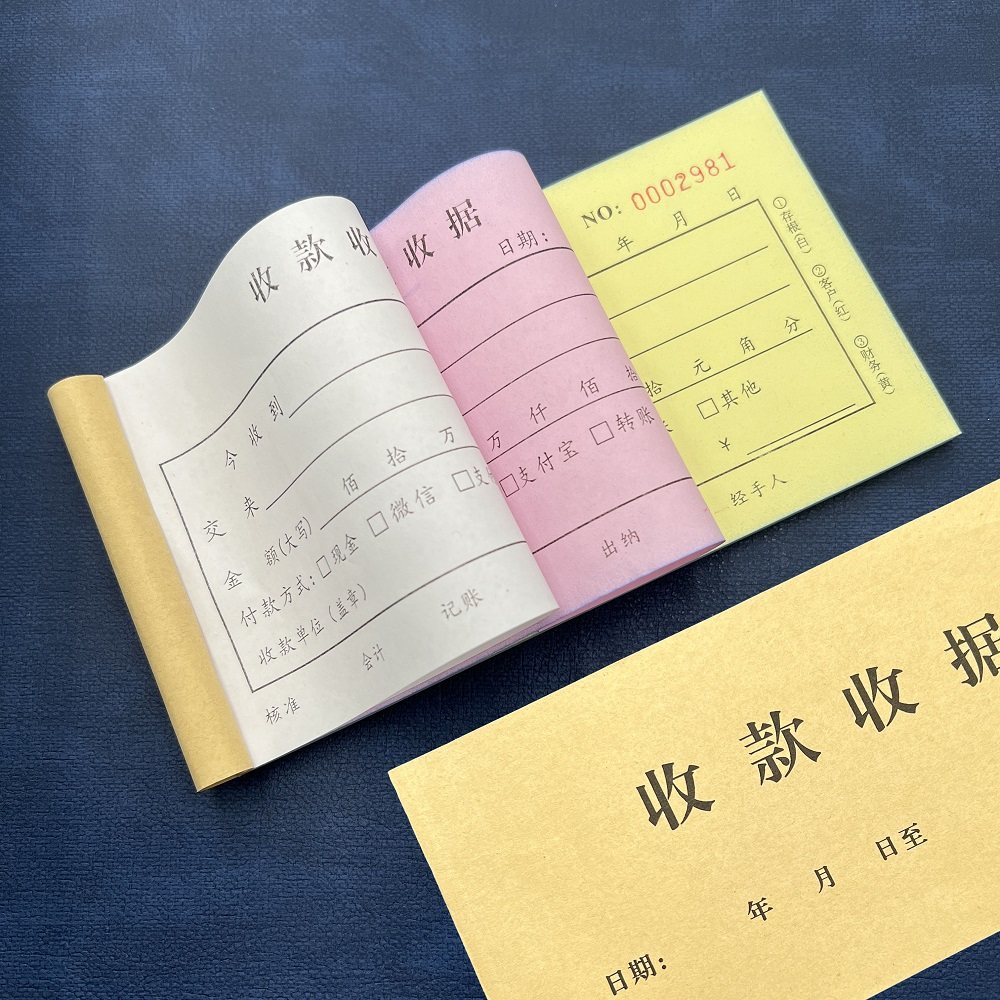 收款收
今收到
交来 佰拾万
金额(大写)
付款方式:□现金 □微信 □支
收款单位(盖章)
核准 会计 记账
收据
日期:
万仟佰拾
□支付宝 □转账
出纳
NO: 0002981
年 月 日
拾元角分
□其他
¥
经手人
①存根(白) ②客户(红) ③财务(黄)
收款收据
日期: 年 月 日至